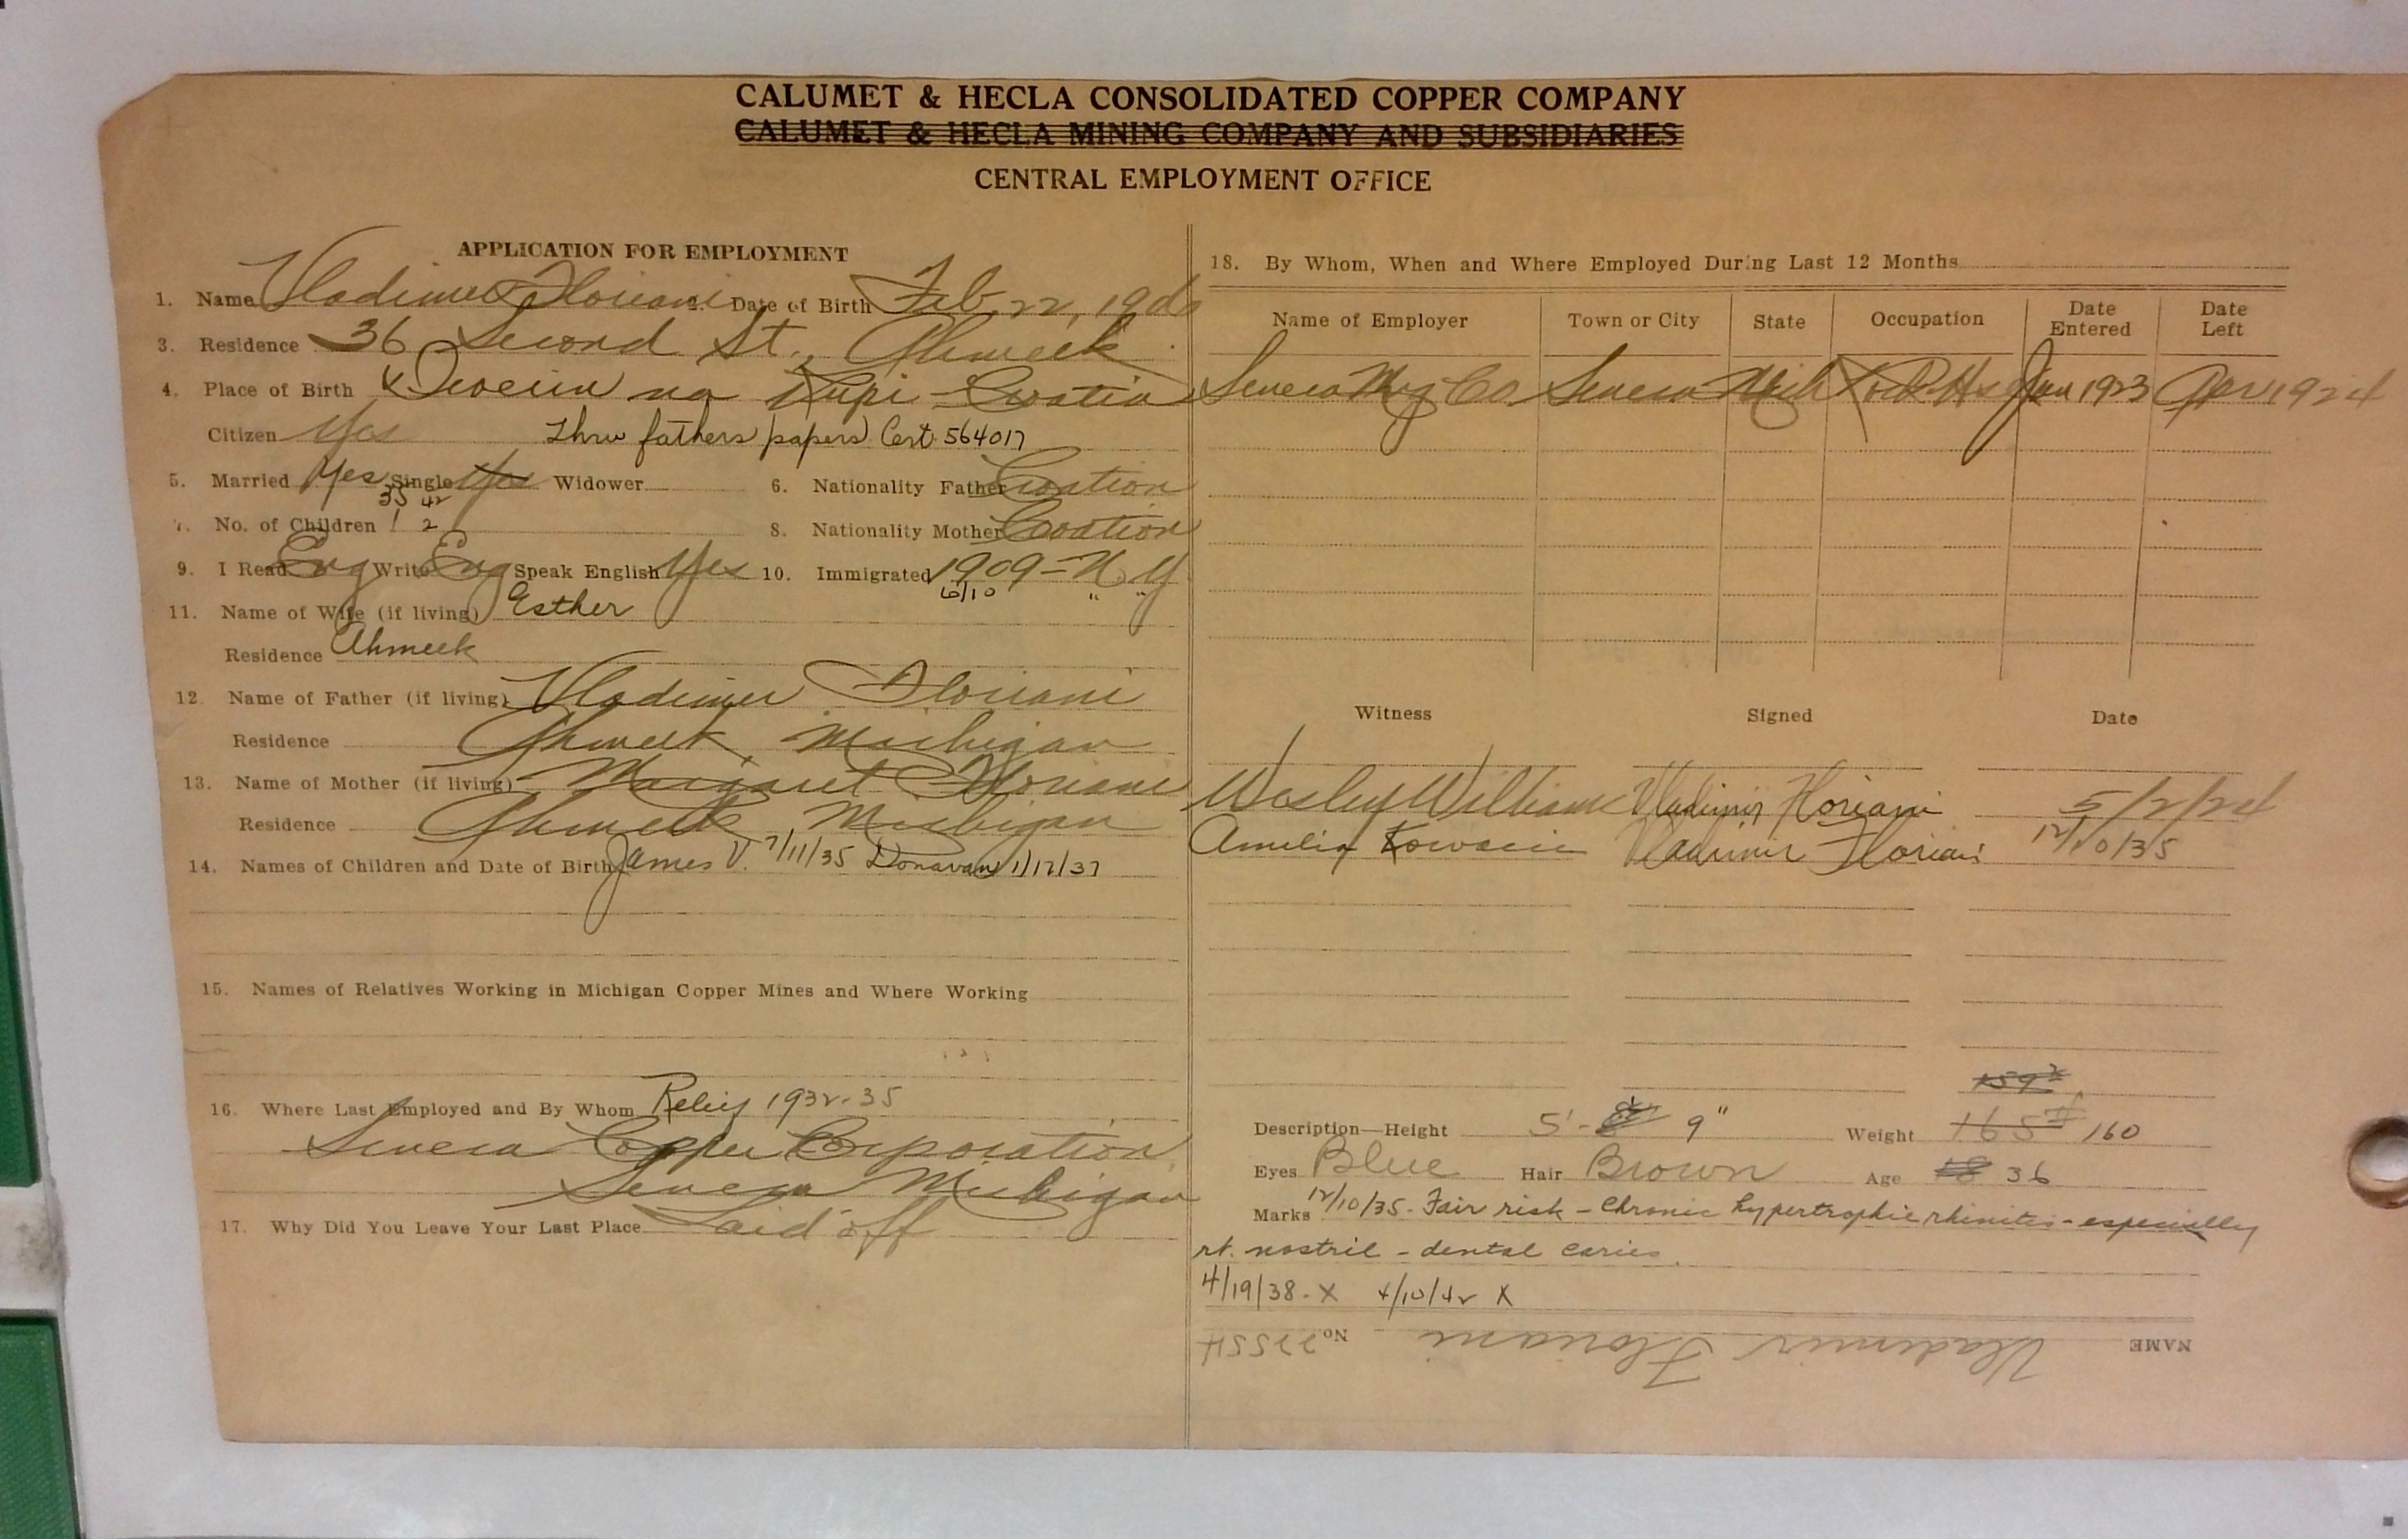 CALUMET & HECLA CONSOLIDATED COPPER COMPANY
CALUMET & HECLA MINING COMPANY AND SUBSIDIARIES
CENTRAL EMPLOYMENT OFFICE
APPLICATION FOR EMPLOYMENT
1. Name Vladimer Floriani 2. Date of Birth Feb 22, 1906
3. Residence 36 Second St., Ahmeek
4. Place of Birth na Kupi - Croatia
Citizen Yes Thru fathers papers Cert. 564017
5. Married Yes Single Yes Widower
35 42
7. No. of Children 1 2
6. Nationality Father Croation
8. Nationality Mother Croation
9. I Read Eng Write Eng Speak English Yes 10. Immigrated 1909 - N. Y.
6/10 " "
11. Name of Wife (if living) Esther
Residence Ahmeek
12. Name of Father (if living) Vladimer Floriani
Residence Ahmeek, Michigan
13. Name of Mother (if living) Margaret Floriani
Residence Ahmeek Michigan
14. Names of Children and Date of Birth James V. 7/11/35 Donavan 1/17/37
15. Names of Relatives Working in Michigan Copper Mines and Where Working
16. Where Last Employed and By Whom Relief 1932-35
Seneca Copper Corporation
Seneca Michigan
17. Why Did You Leave Your Last Place Laid off
18. By Whom, When and Where Employed During Last 12 Months
Name of Employer Town or City State Occupation Date Entered Date Left
Seneca Mng Co Seneca Mich Jan 1923 Apr 1924
Witness Signed Date
Wesley Williams Vladimir Floriani 5/2/24
Amelia Vladimir Floriani 12/10/35
159#
Description—Height 5'- 9" Weight 165# 160
Eyes Blue Hair Brown Age 18 36
Marks 12/10/35 - Fair risk - Chronic hypertrophic rhinitis - especially
rt. nostril - dental caries.
4/19/38 - X 4/10/42 X
NAME Vladimir Floriani No 22554